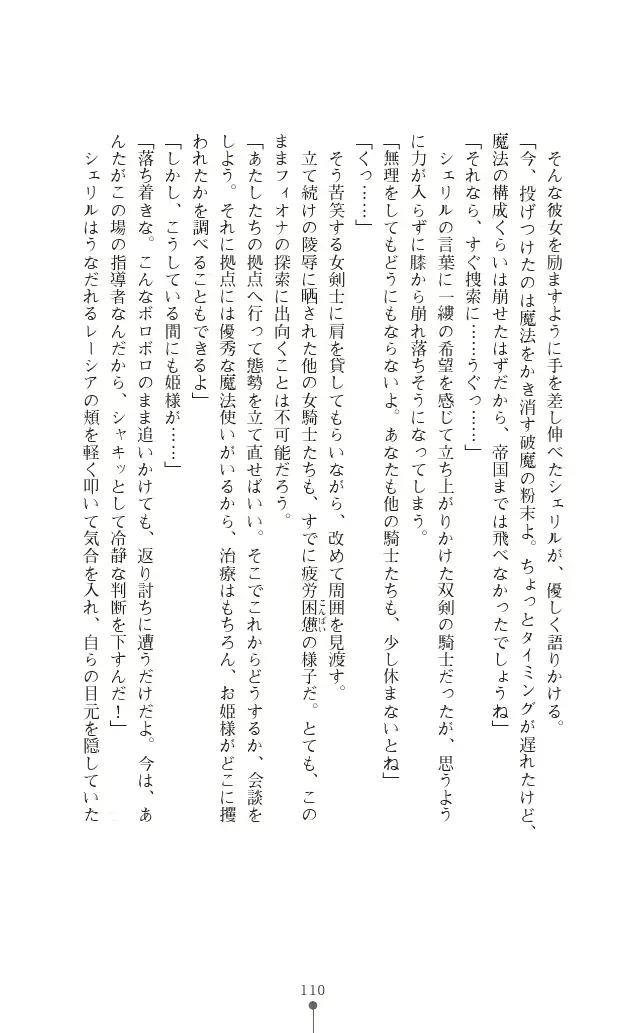 そんな彼女を励ますように手を差し伸べたシェリルが、優しく語りかける。
「今、投げつけたのは魔法をかき消す破魔の粉末よ。ちょっとタイミングが遅れたけど、
魔法の構成くらいは崩せたはずだから、帝国までは飛べなかったでしょうね」
「それなら、すぐ捜索に……うぐっ……」
シェリルの言葉に一縷の希望を感じて立ち上がりかけた双剣の騎士だったが、思うよう
に力が入らずに膝から崩れ落ちそうになってしまう。
「無理をしてもどうにもならないよ。あなたも他の騎士たちも、少し休まないとね」
「くっ……」
そう苦笑する女剣士に肩を貸してもらいながら、改めて周囲を見渡す。
立て続けの陵辱に晒された他の女騎士たちも、すでに疲労困憊の様子だ。とても、この
こんぱい
ままフィオナの探索に出向くことは不可能だろう。
「あたしたちの拠点へ行って態勢を立て直せばいい。そこでこれからどうするか、会談を
しよう。それに拠点には優秀な魔法使いがいるから、治療はもちろん、お姫様がどこに攫
われたかを調べることもできるよ」
「しかし、こうしている間にも姫様が……」
「落ち着きな。こんなボロボロのまま追いかけても、返り討ちに遭うだけだよ。今は、あ
んたがこの場の指導者なんだから、シャキッとして冷静な判断を下すんだ！」
シェリルはうなだれるレーシアの頬を軽く叩いて気合を入れ、自らの目元を隠していた
110